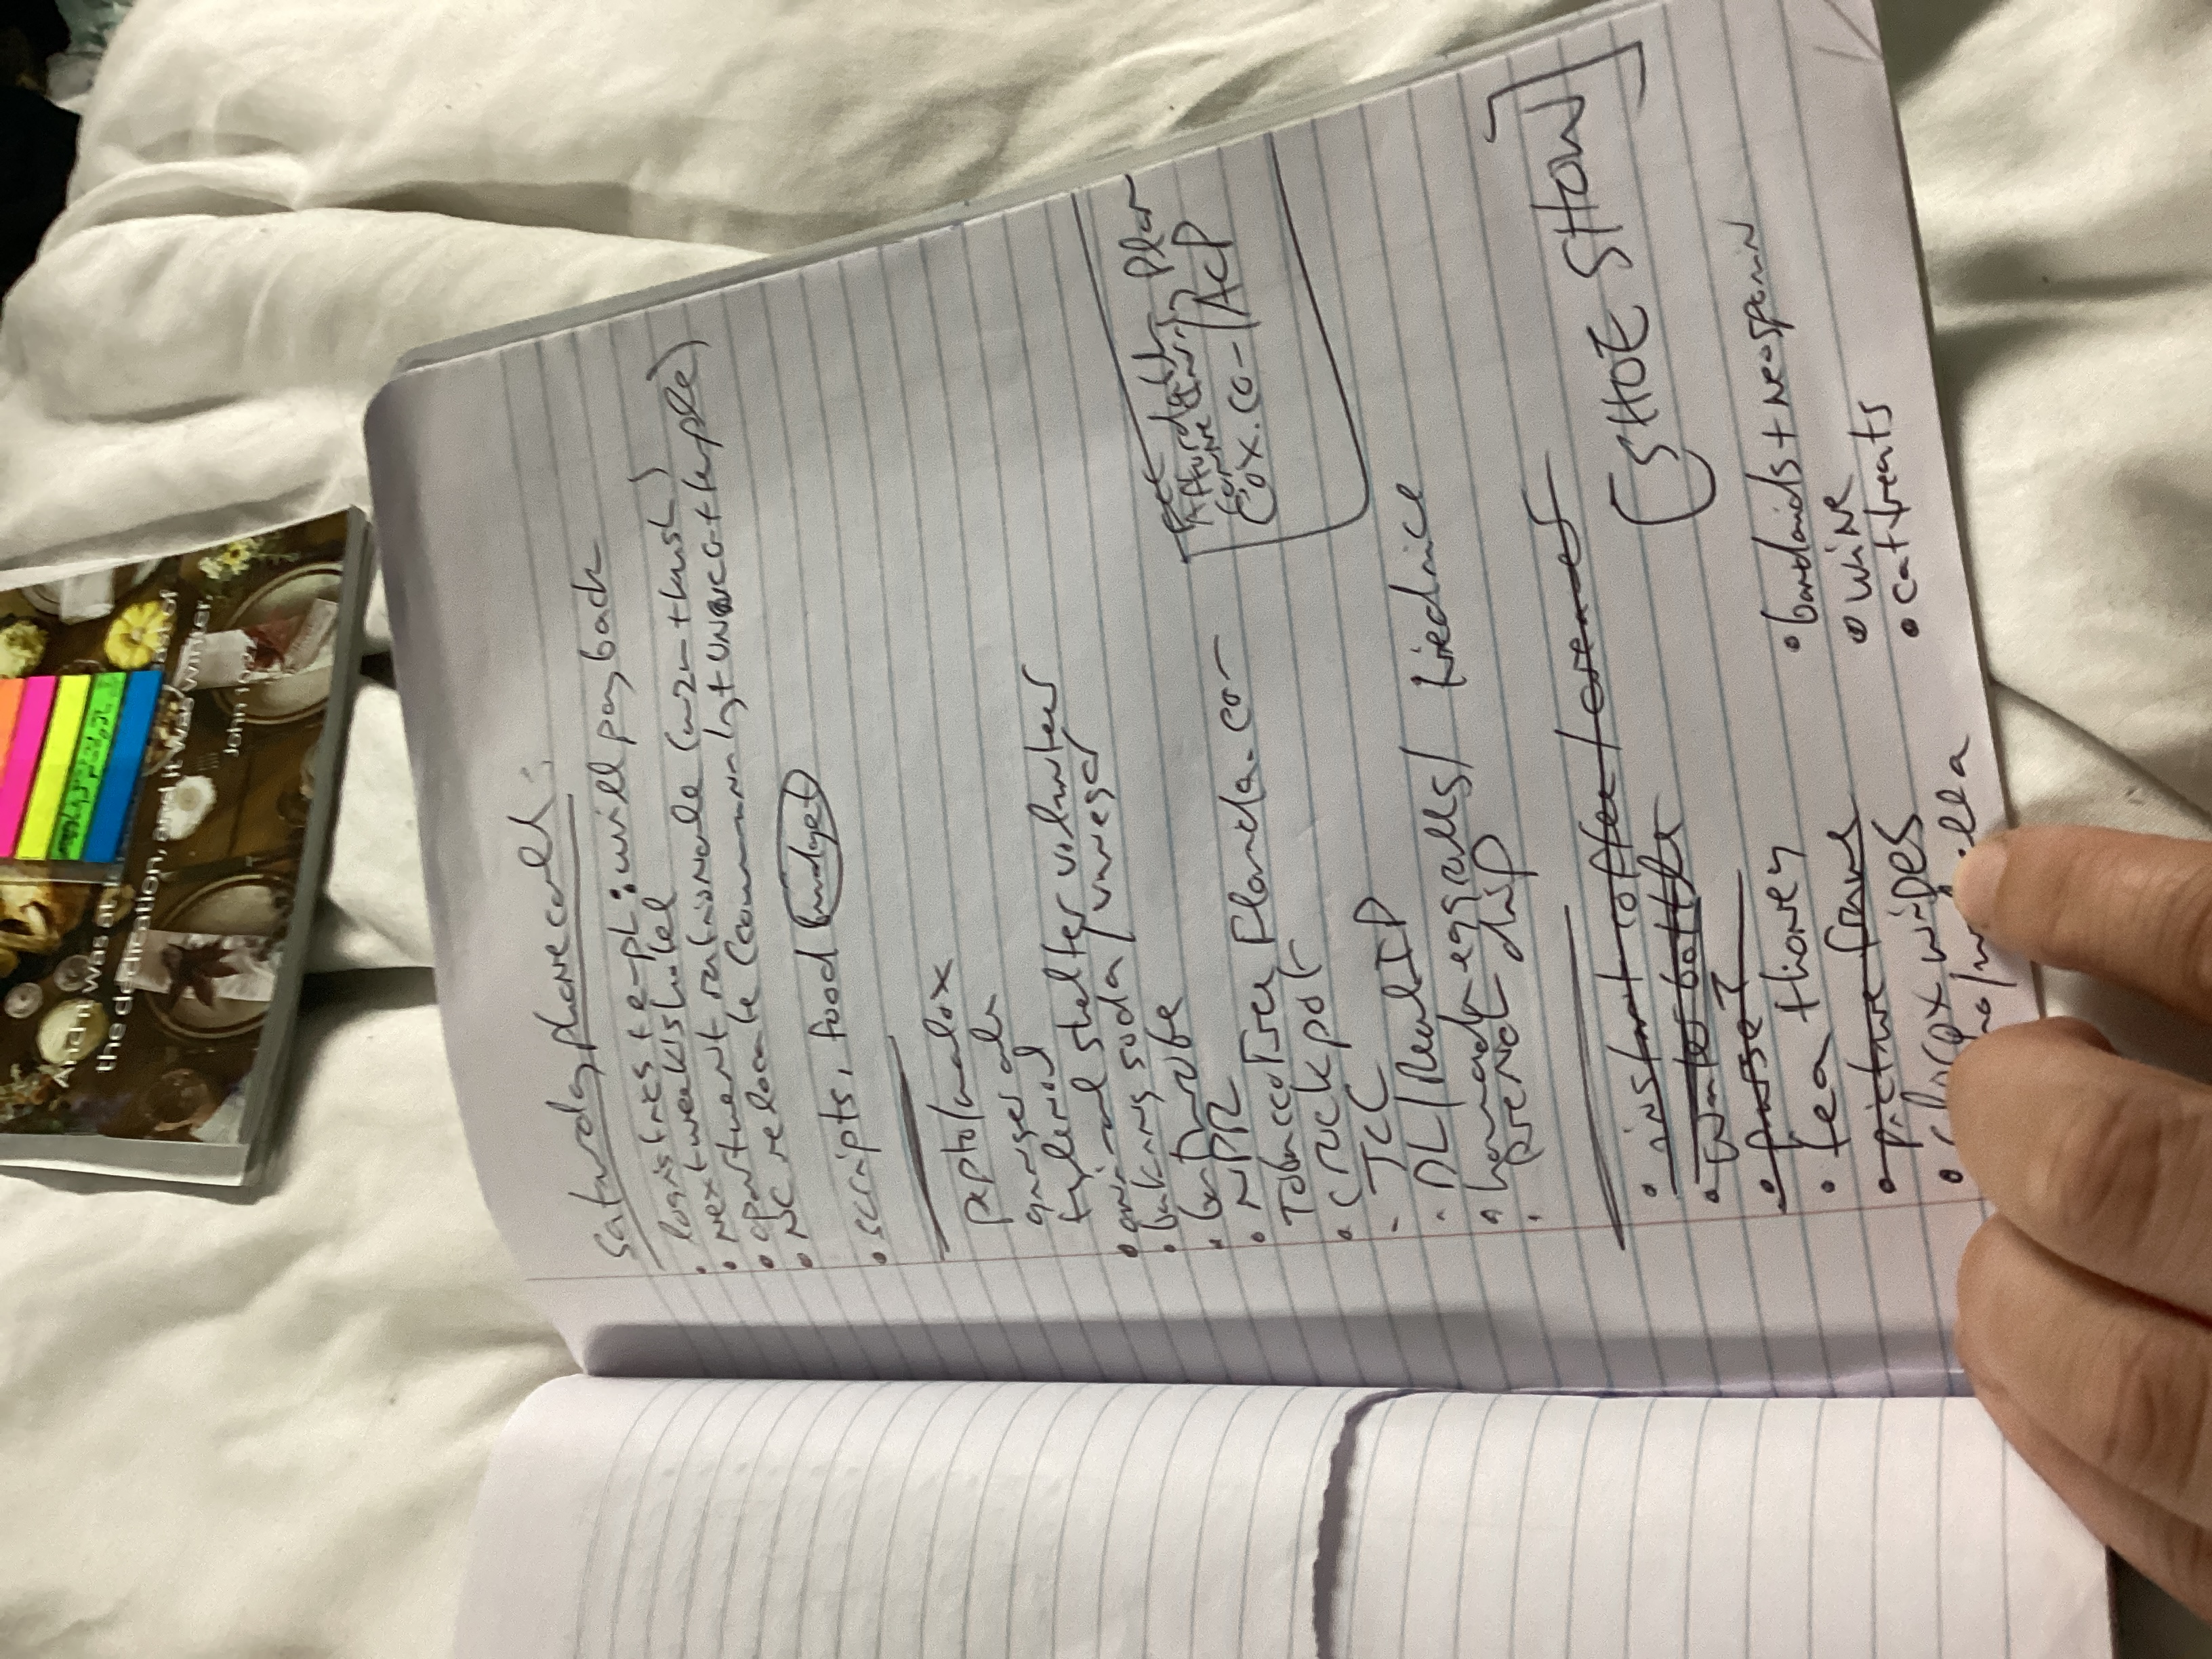 And it was at
the dedication, and it was winter,
John 10:
Saturday phone call:
• logistics temp : will pay back
• next week's hotel
• apartment rationale
• NC relocate
• scripts, food budget
pepto/malox
ginger ale
tylenol
• animal shelter volunteer
• baking soda / vinegar
• bathrobe
• NPR
TobaccoFreeFlorida.com
• crockpot
• JCC
• DL/Real ID
• homemade eggrolls/ friedrice
• French dip
FCC
Affordable
Connectivity Plan
Cox.com/ACP
• instant coffee / creamer
• water bottle
• purse?
• tea + honey
• picture frame
• clorox wipes
[SHOE SHOW]
• bandaids + neosporin
• wine
• cat treats